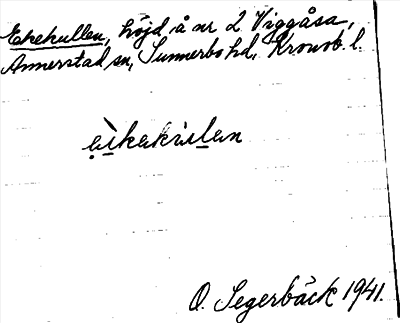 Ekekullen, höjd å nr 2 Viggåsa,
Annerstad sn, Sunnerbo hd, Kronob. l.
O. Segerbäck 1941.